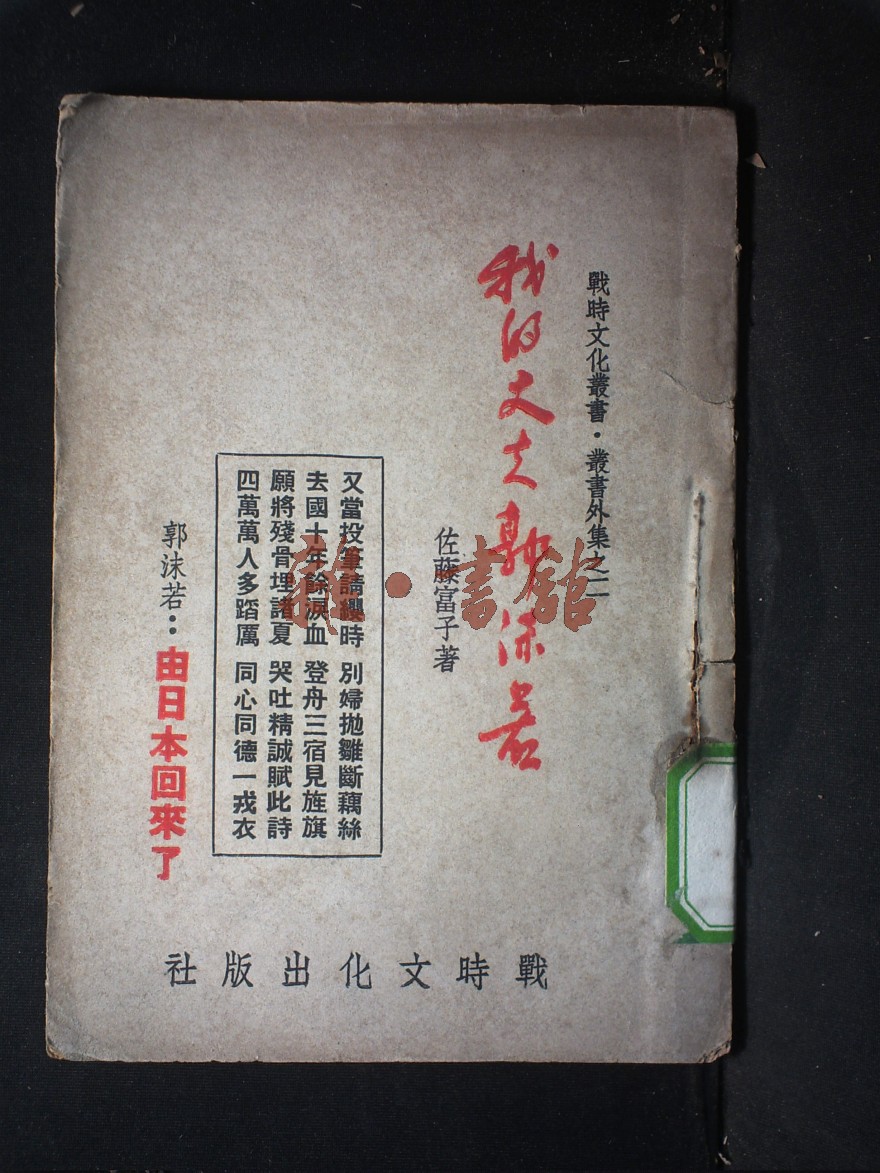 戰時文化叢書·叢書外集之二
我的丈夫郭沫若
佐藤富子著
又當投筆請纓時 別婦抛雛斷藕絲
去國十年餘淚血 登舟三宿見旌旗
願將殘骨埋諸夏 哭吐精誠賦此詩
四萬萬人多蹈厲 同心同德一戎衣
郭沫若：由日本回來了
戰時文化出版社